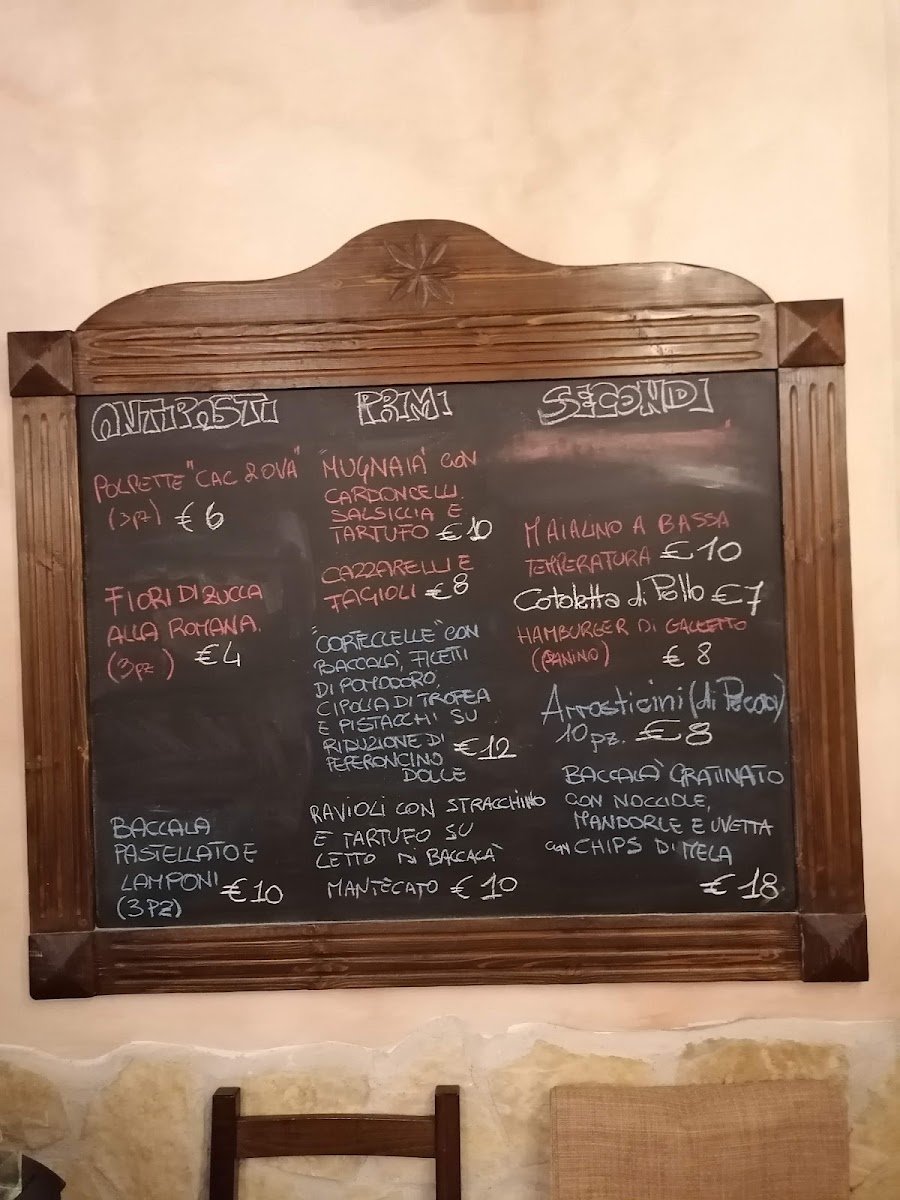 ANTIPASTI
POLPETTE "CAC 2 OVA"
(3pz) €6
FIORI DI ZUCCA
ALLA ROMANA.
(3pz) €4
BACCALA
PASTELLATO E
LAMPONI
(3PZ) €10
PRIMI
"MUGNAIA" CON
CARDONCELLI.
SALSICCIA E
TARTUFO €10
CAZZARELLI E
FAGIOLI €8
"CORTECCELLE" CON
BACCALÀ, FILETTI
DI POMODORO,
CIPOLLA DI TROPEA
E PISTACCHI SU
RIDUZIONE DI €12
PEPERONCINO
DOLCE
RAVIOLI CON STRACCHINO
E TARTUFO SU
LETTO DI BACCALÀ
MANTECATO €10
SECONDI
MAIALINO A BASSA
TEMPERATURA €10
Cotoletta di Pollo €7
HAMBURGER DI GALLETTO
(PANINO) €8
Arrosticini (di Pecora)
10 pz. €8
BACCALA' GRATINATO
CON NOCCIOLE,
MANDORLE E UVETTA
CON CHIPS DI MELA
€18